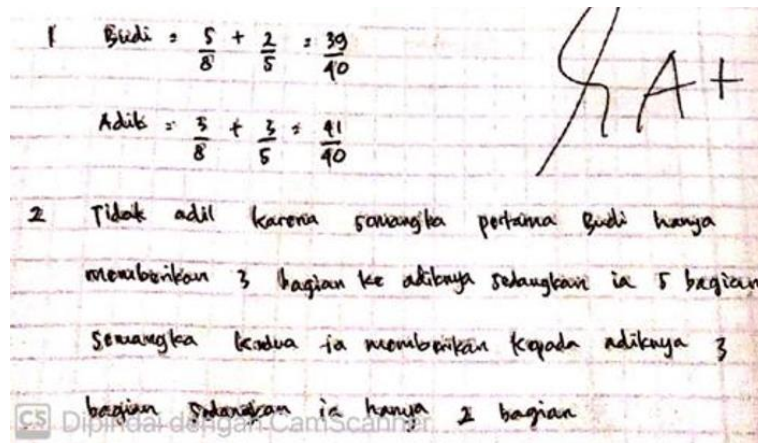 1 Budi = 5/8 + 2/5 = 39/40
A+
Adik = 3/8 + 3/5 = 41/40
2 Tidak adil karena semangka pertama Budi hanya
memberikan 3 bagian ke adiknya sedangkan ia 5 bagian
Semangka kedua ia memberikan kepada adiknya 3
bagian sedangkan ia hanya 2 bagian
CS Dipindai dengan CamScanner